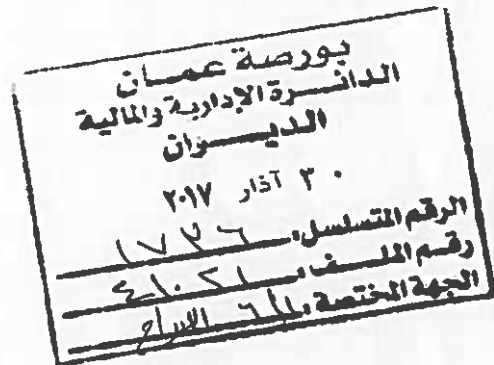 بورصة عمان
الدائرة الإدارية والمالية
الديوان
٣٠ آذار ٢٠١٧
الرقم المتسلسل: ١٧٣٦
رقم الملف: ٤١٠٢١
الجهة المختصة: الإدراج